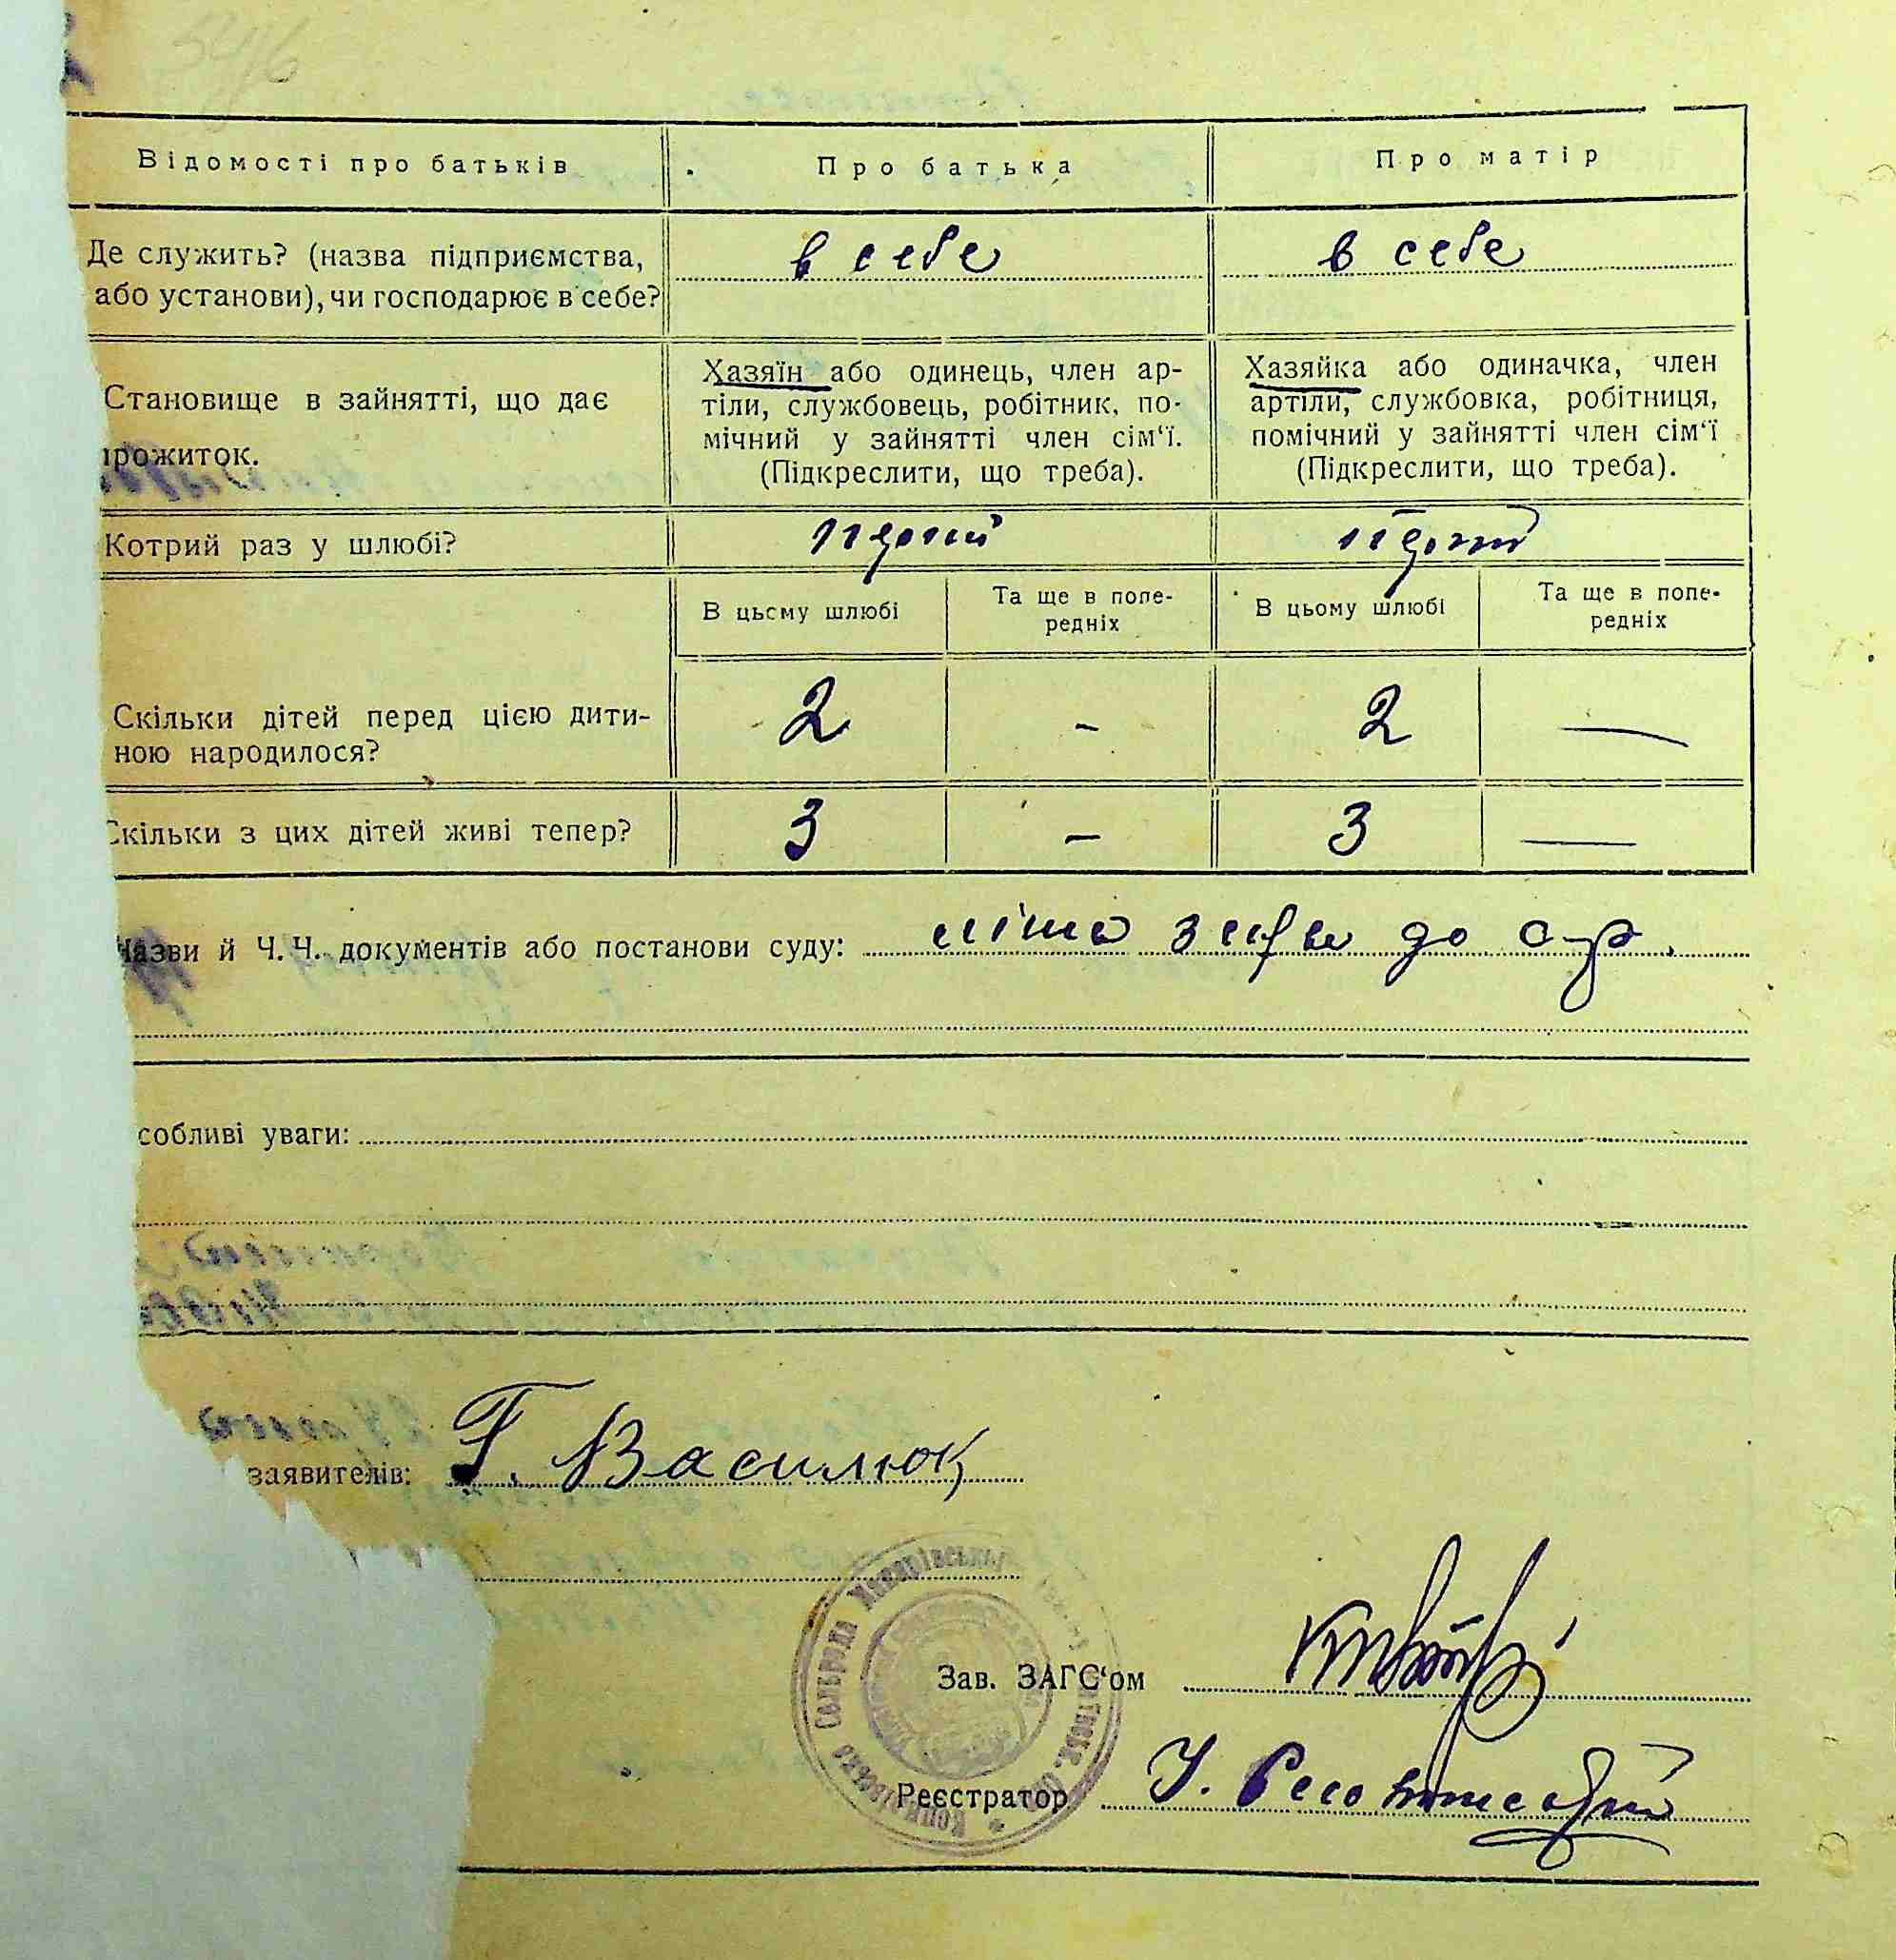 5416
Відомості про батьків
Про батька
Про матір
Де служить? (назва підприємства,
або установи), чи господарює в себе?
в себе
в себе
Становище в зайнятті, що дає
прожиток.
Хазяїн або одинець, член ар-
тіли, службовець, робітник, по-
мічний у зайнятті член сім‘ї.
(Підкреслити, що треба).
Хазяйка або одиначка, член
артіли, службовка, робітниця,
помічний у зайнятті член сім‘ї
(Підкреслити, що треба).
Котрий раз у шлюбі?
перший
перший
В цьому шлюбі
Та ще в попе-
редніх
В цьому шлюбі
Та ще в попе-
редніх
Скільки дітей перед цією дити-
ною народилося?
2
-
2
—
Скільки з цих дітей живі тепер?
3
-
3
—
Назви й Ч. Ч. документів або постанови суду:
до
собливі уваги:
заявителів: Г. Василюк
Зав. ЗАГС‘ом
Реєстратор
Сельрада Макарівськ